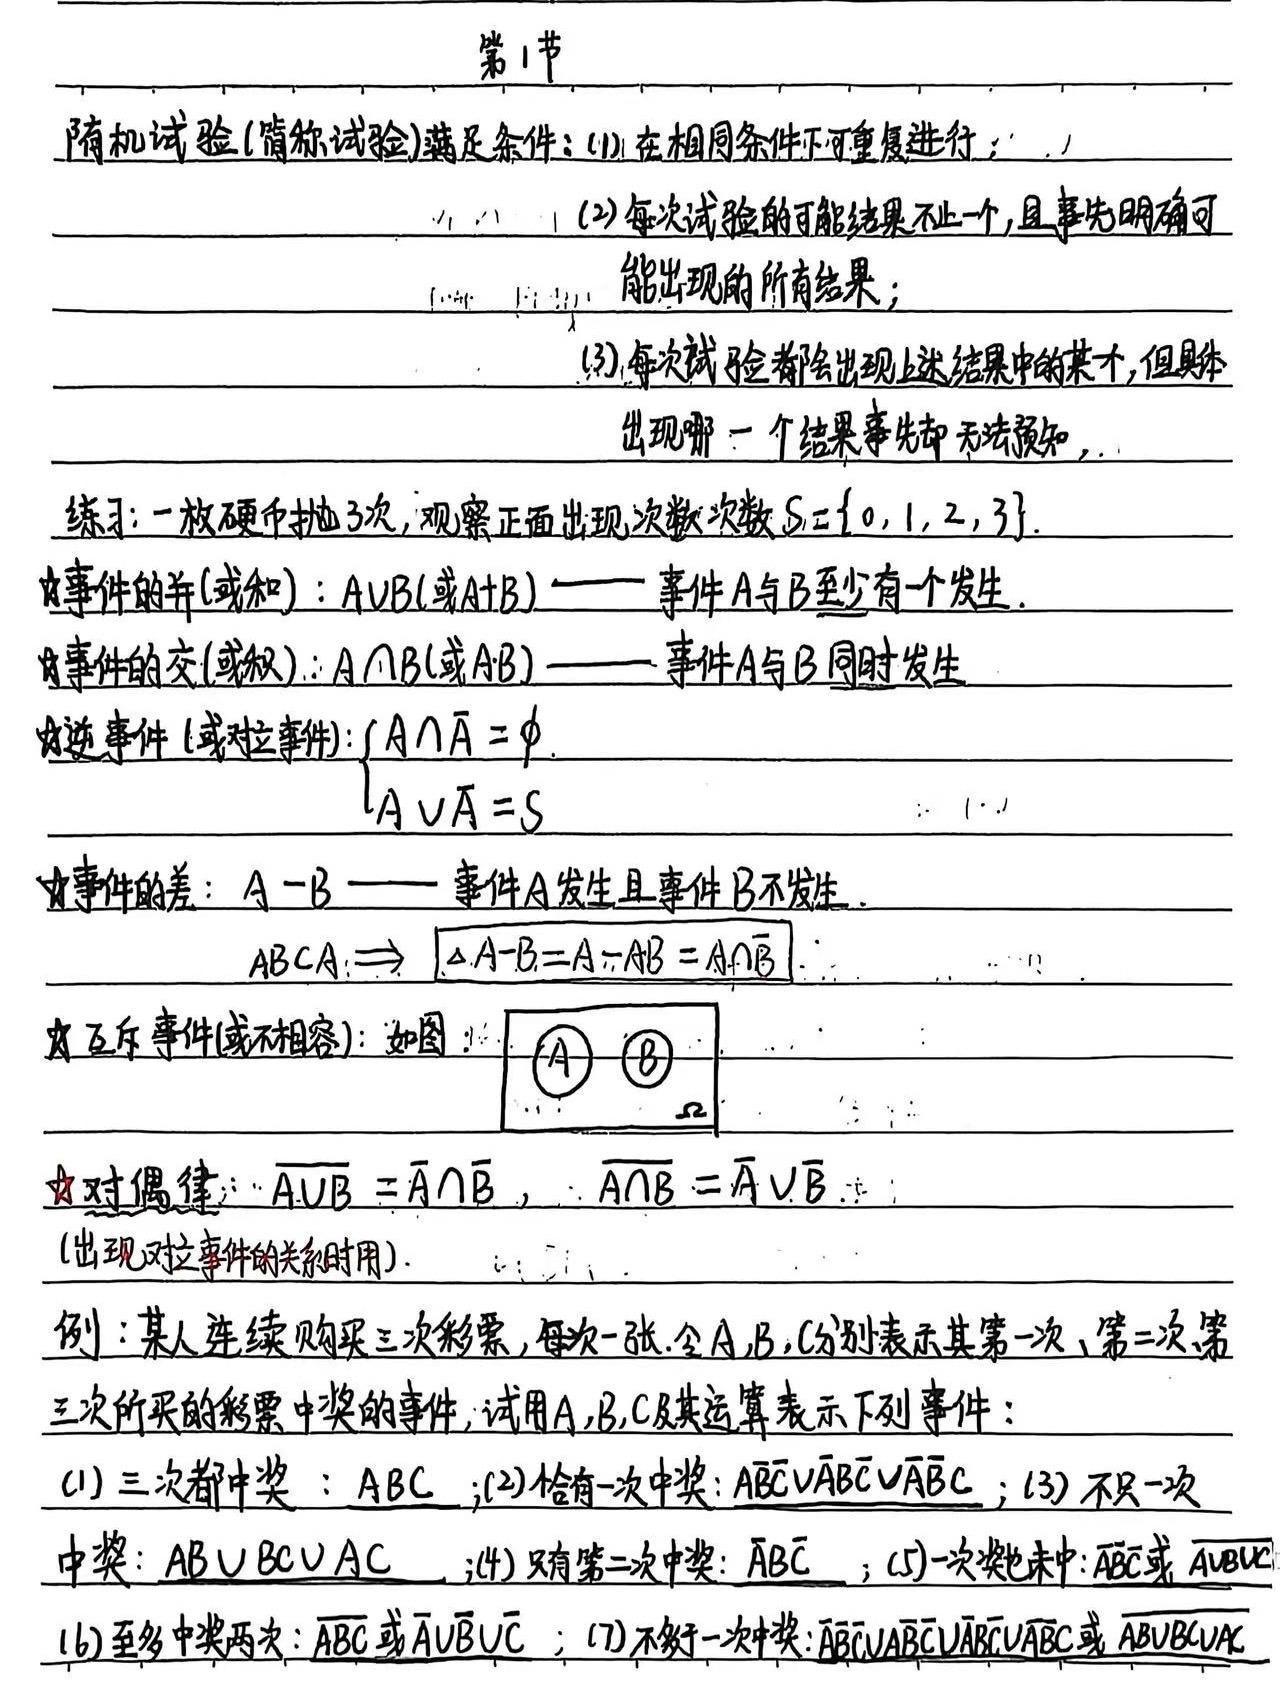 第1节
随机试验(简称试验)满足条件：(1)在相同条件下可重复进行；
(2)每次试验的可能结果不止一个，且事先明确可
能出现的所有结果；
(3)每次试验都会出现上述结果中的某个，但具体
出现哪一个结果事先却无法预知，
练习：一枚硬币抛3次，观察正面出现次数次数S={0，1，2，3}.
☆事件的并(或和)：A∪B(或A+B) —— 事件A与B至少有一个发生.
☆事件的交(或积)：A∩B(或A·B) —— 事件A与B同时发生
☆逆事件(或对立事件)：{A∩A̅=φ.
A∪A̅=S
☆事件的差：A-B —— 事件A发生且事件B不发生.
AB⊂A ⟹ △A-B=A-AB=A∩B̅
☆互斥事件(或不相容)：如图：
A B
Ω
☆对偶律：A̅∪̅B̅=A̅∩B̅，A̅∩̅B̅=A̅∪B̅.
(出现对立事件的关系时用).
例：某人连续购买三次彩票，每次一张.令A,B,C分别表示其第一次、第二次、第
三次所买的彩票中奖的事件，试用A,B,C及其运算表示下列事件：
(1)三次都中奖：ABC；(2)恰有一次中奖：AB̅C̅∪A̅BC̅∪A̅B̅C；(3)不只一次
中奖：AB∪BC∪AC；(4)只有第二次中奖：A̅BC̅；(5)一次奖也未中：A̅B̅C̅或A̅∪̅B̅∪̅C̅
(6)至多中奖两次：A̅B̅C̅或A̅∪B̅∪C̅；(7)不多于一次中奖：A̅B̅C̅∪AB̅C̅∪A̅BC̅∪A̅B̅C或A̅B̅∪̅B̅C̅∪̅A̅C̅